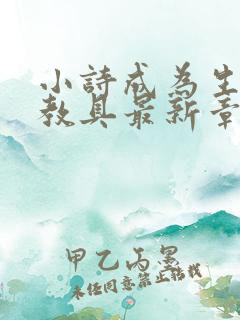 小詩成為生
教具最新章
甲乙丙墨
未经同意禁止转载